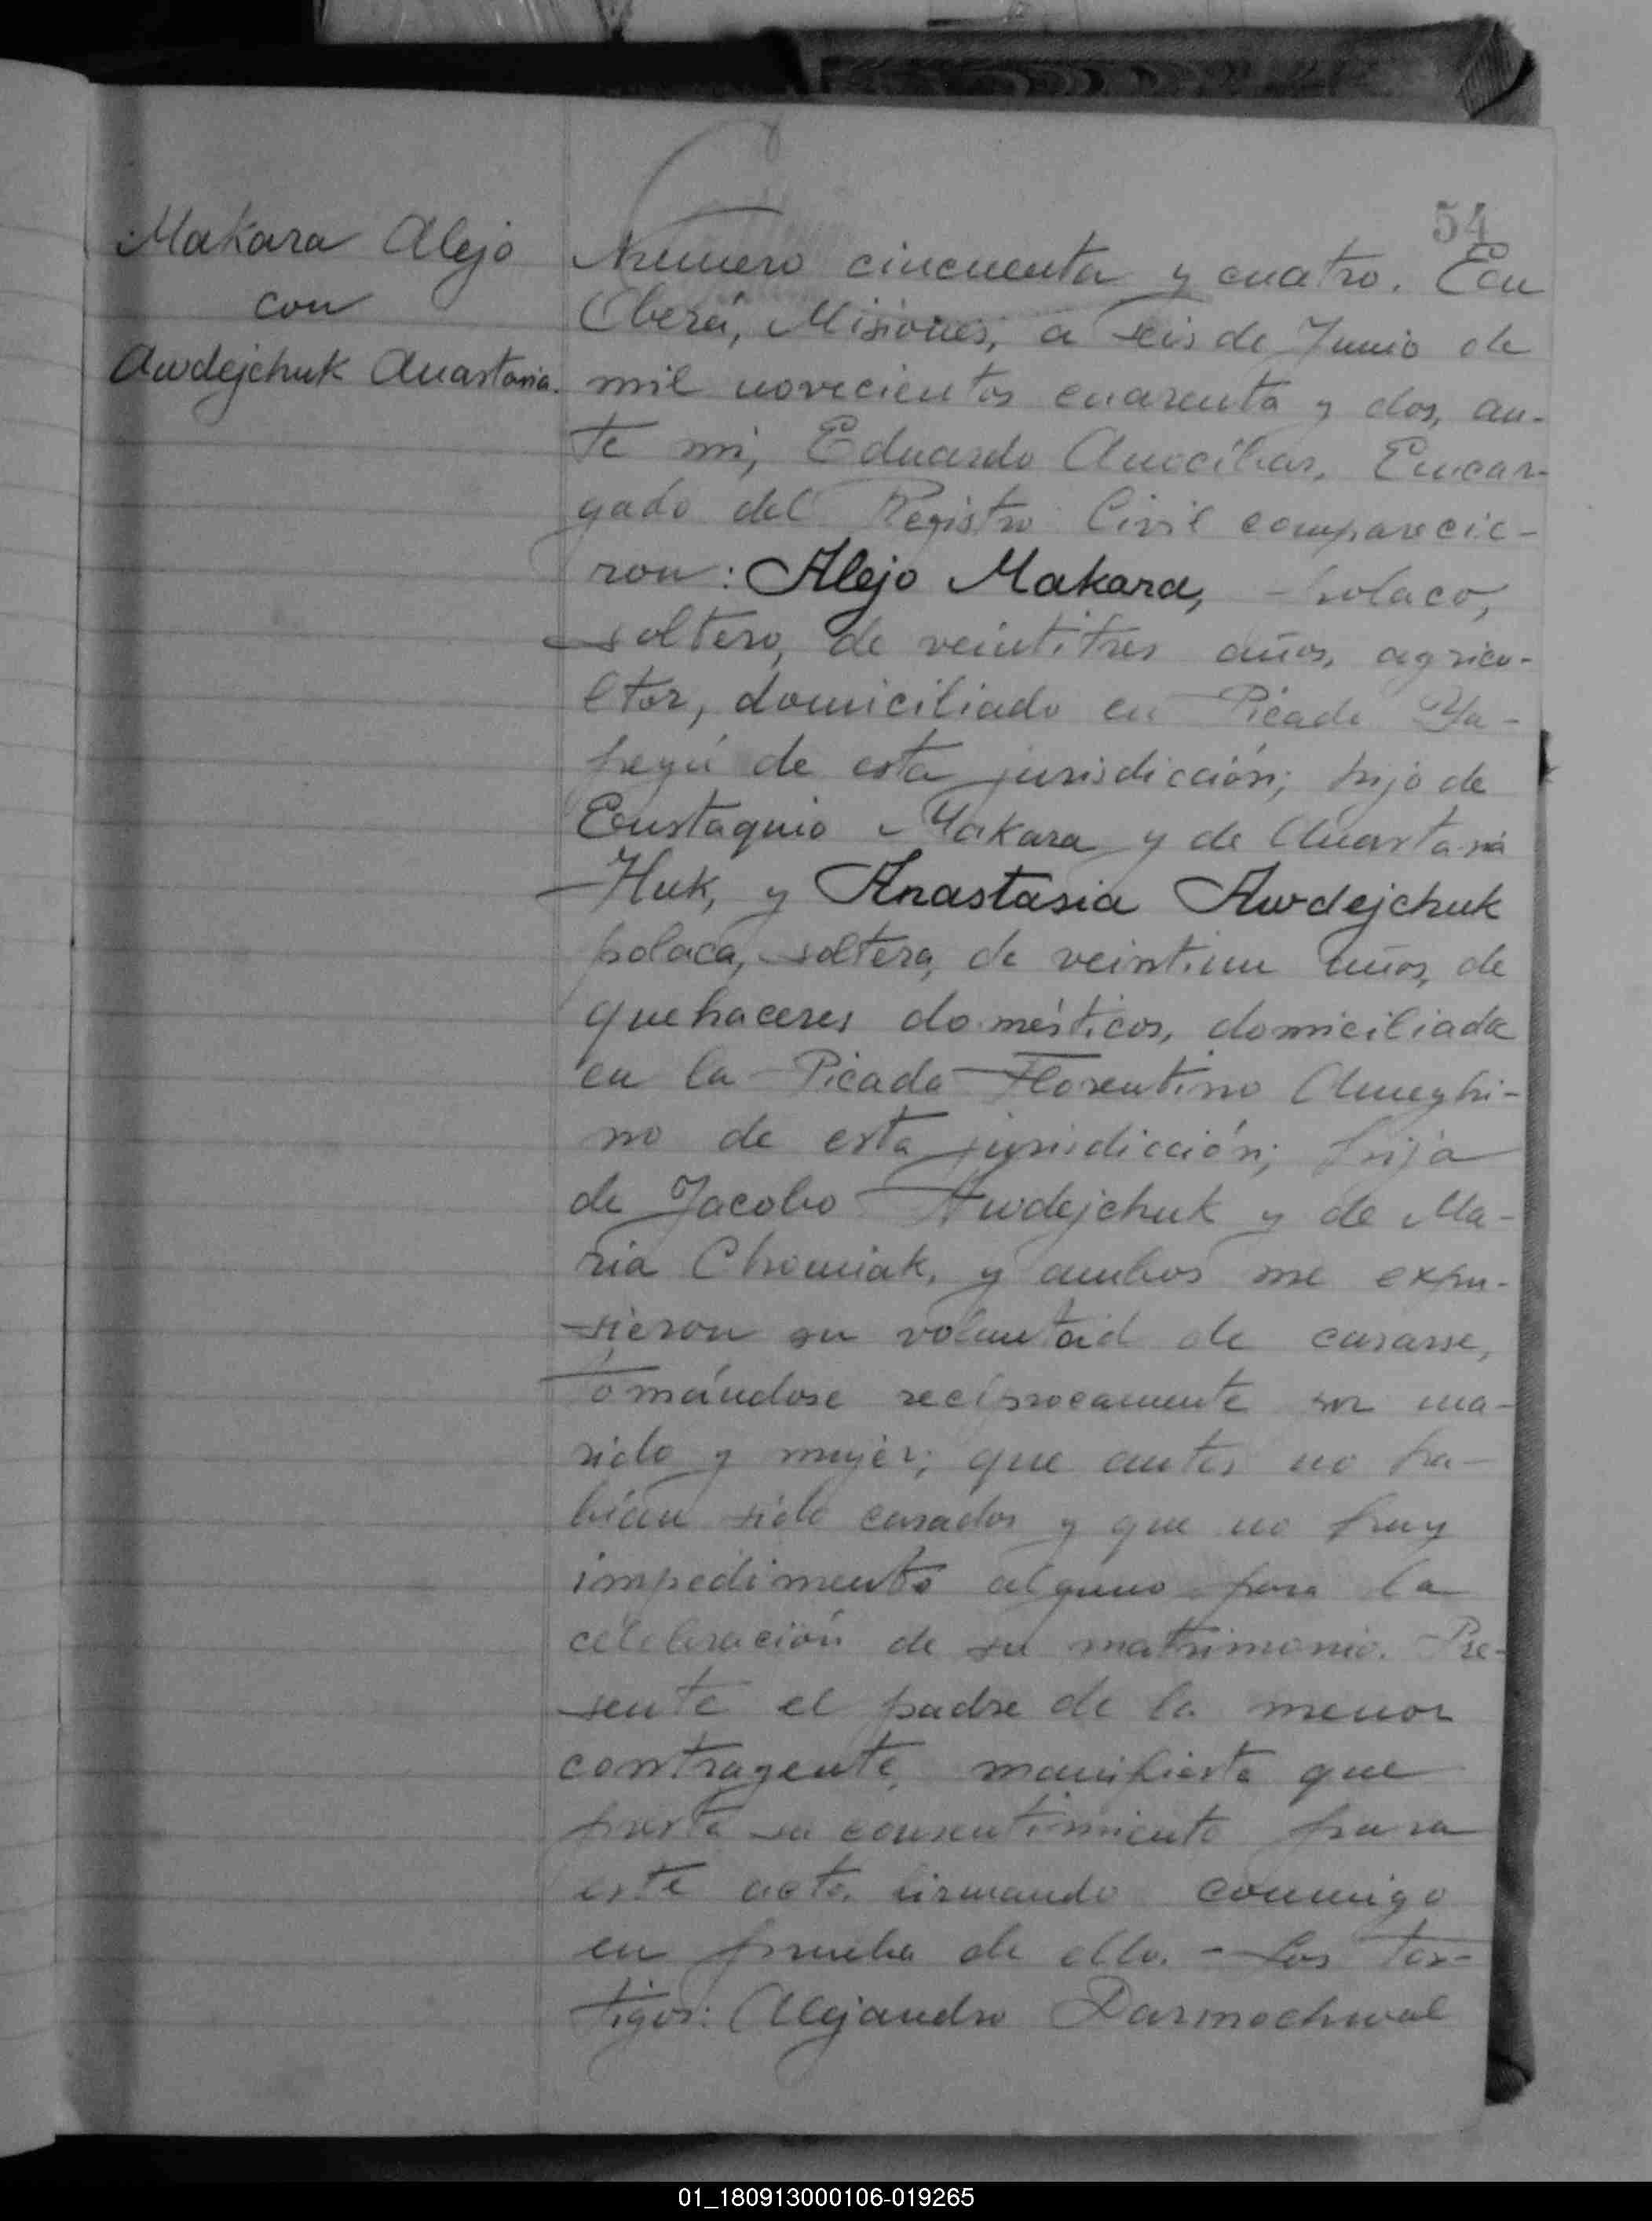 54
Makara Alejo
con
Awdejchuk Anastasia.
Numero cincuenta y cuatro. En
Oberá, Misiones, a seis de Junio de
mil novecientos cuarenta y dos, an-
te mi, Eduardo Anocíbar, Encar-
gado del Registro Civil comparecie-
ron: Alejo Makara, - polaco,
soltero, de veintitres años, agricu-
ltor, domiciliado en Picada Ya-
peyú de esta jurisdicción; hijo de
Eustaquio Makara y de Anastasia
Huk, y Anastasia Awdejchuk
polaca, soltera, de veintiun años, de
quehaceres domésticos, domiciliada
en la Picada Florentino Ameghi-
no de esta jurisdicción; hija
de Jacobo Awdejchuk y de Ma-
ria Chomiak, y ambos me expu-
sieron su voluntad de casarse,
tomándose recíprocamente por ma-
rido y mujer; que antes no ha-
bían sido casados y que no hay
impedimento alguno para la
celebración de su matrimonio. Pre-
sente el padre de la menor
contragente, manifiesta que
presta su consentimiento para
este acto, firmando conmigo
en prueba de ello. - Los tes-
tigos: Alejandro Darmochwal
01_180913000106-019265